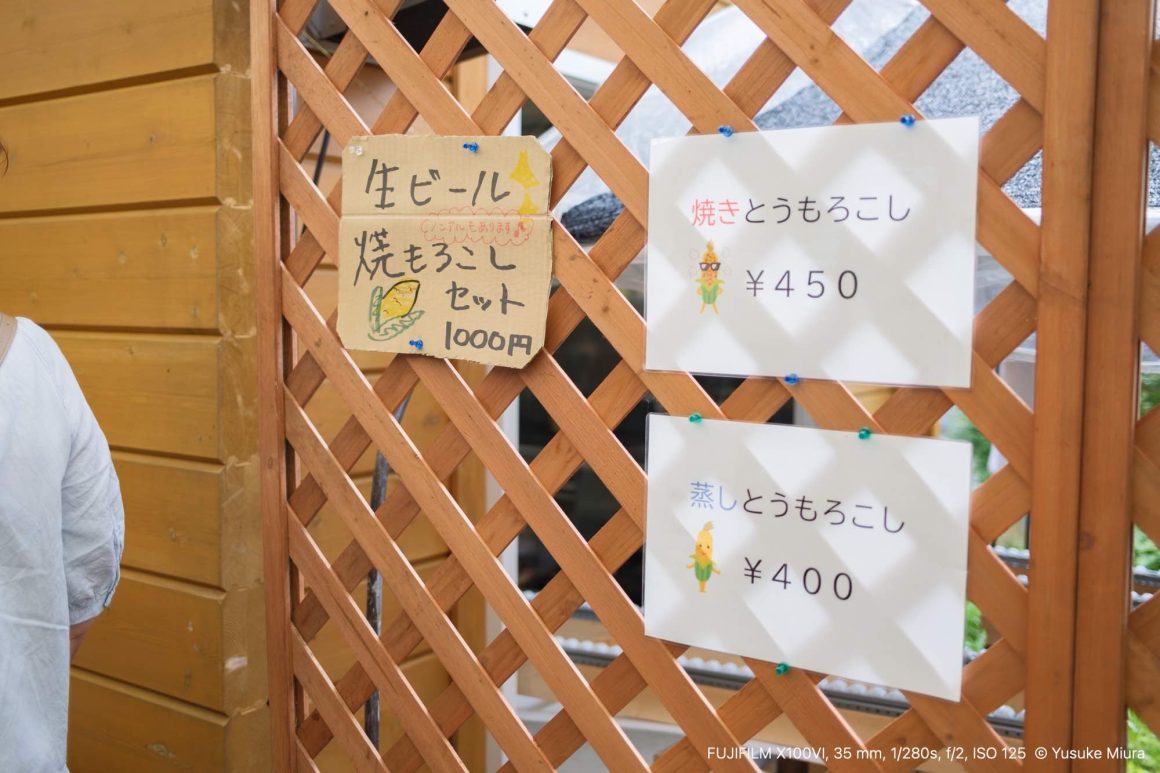 生ビール
ノンアルもあります
焼もろこし
セット
1000円
焼きとうもろこし
¥450
蒸しとうもろこし
¥400
FUJIFILM X100VI, 35 mm, 1/280s, f/2, ISO 125 © Yusuke Miura